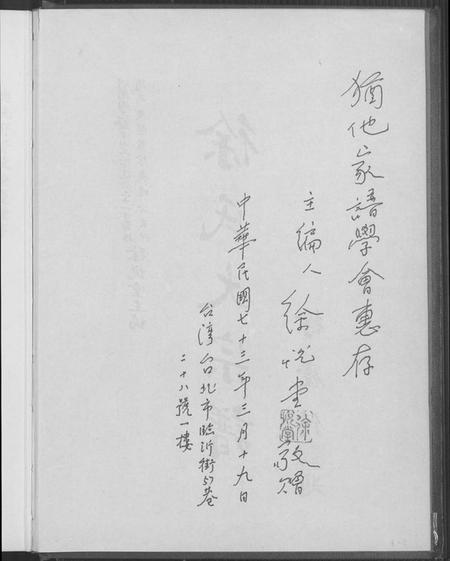 猶他家譜學會惠存
主編人 徐悦堂 敬贈
中華民國七十三年三月十九日
台灣台北市臨沂街57巷
二十八號一樓